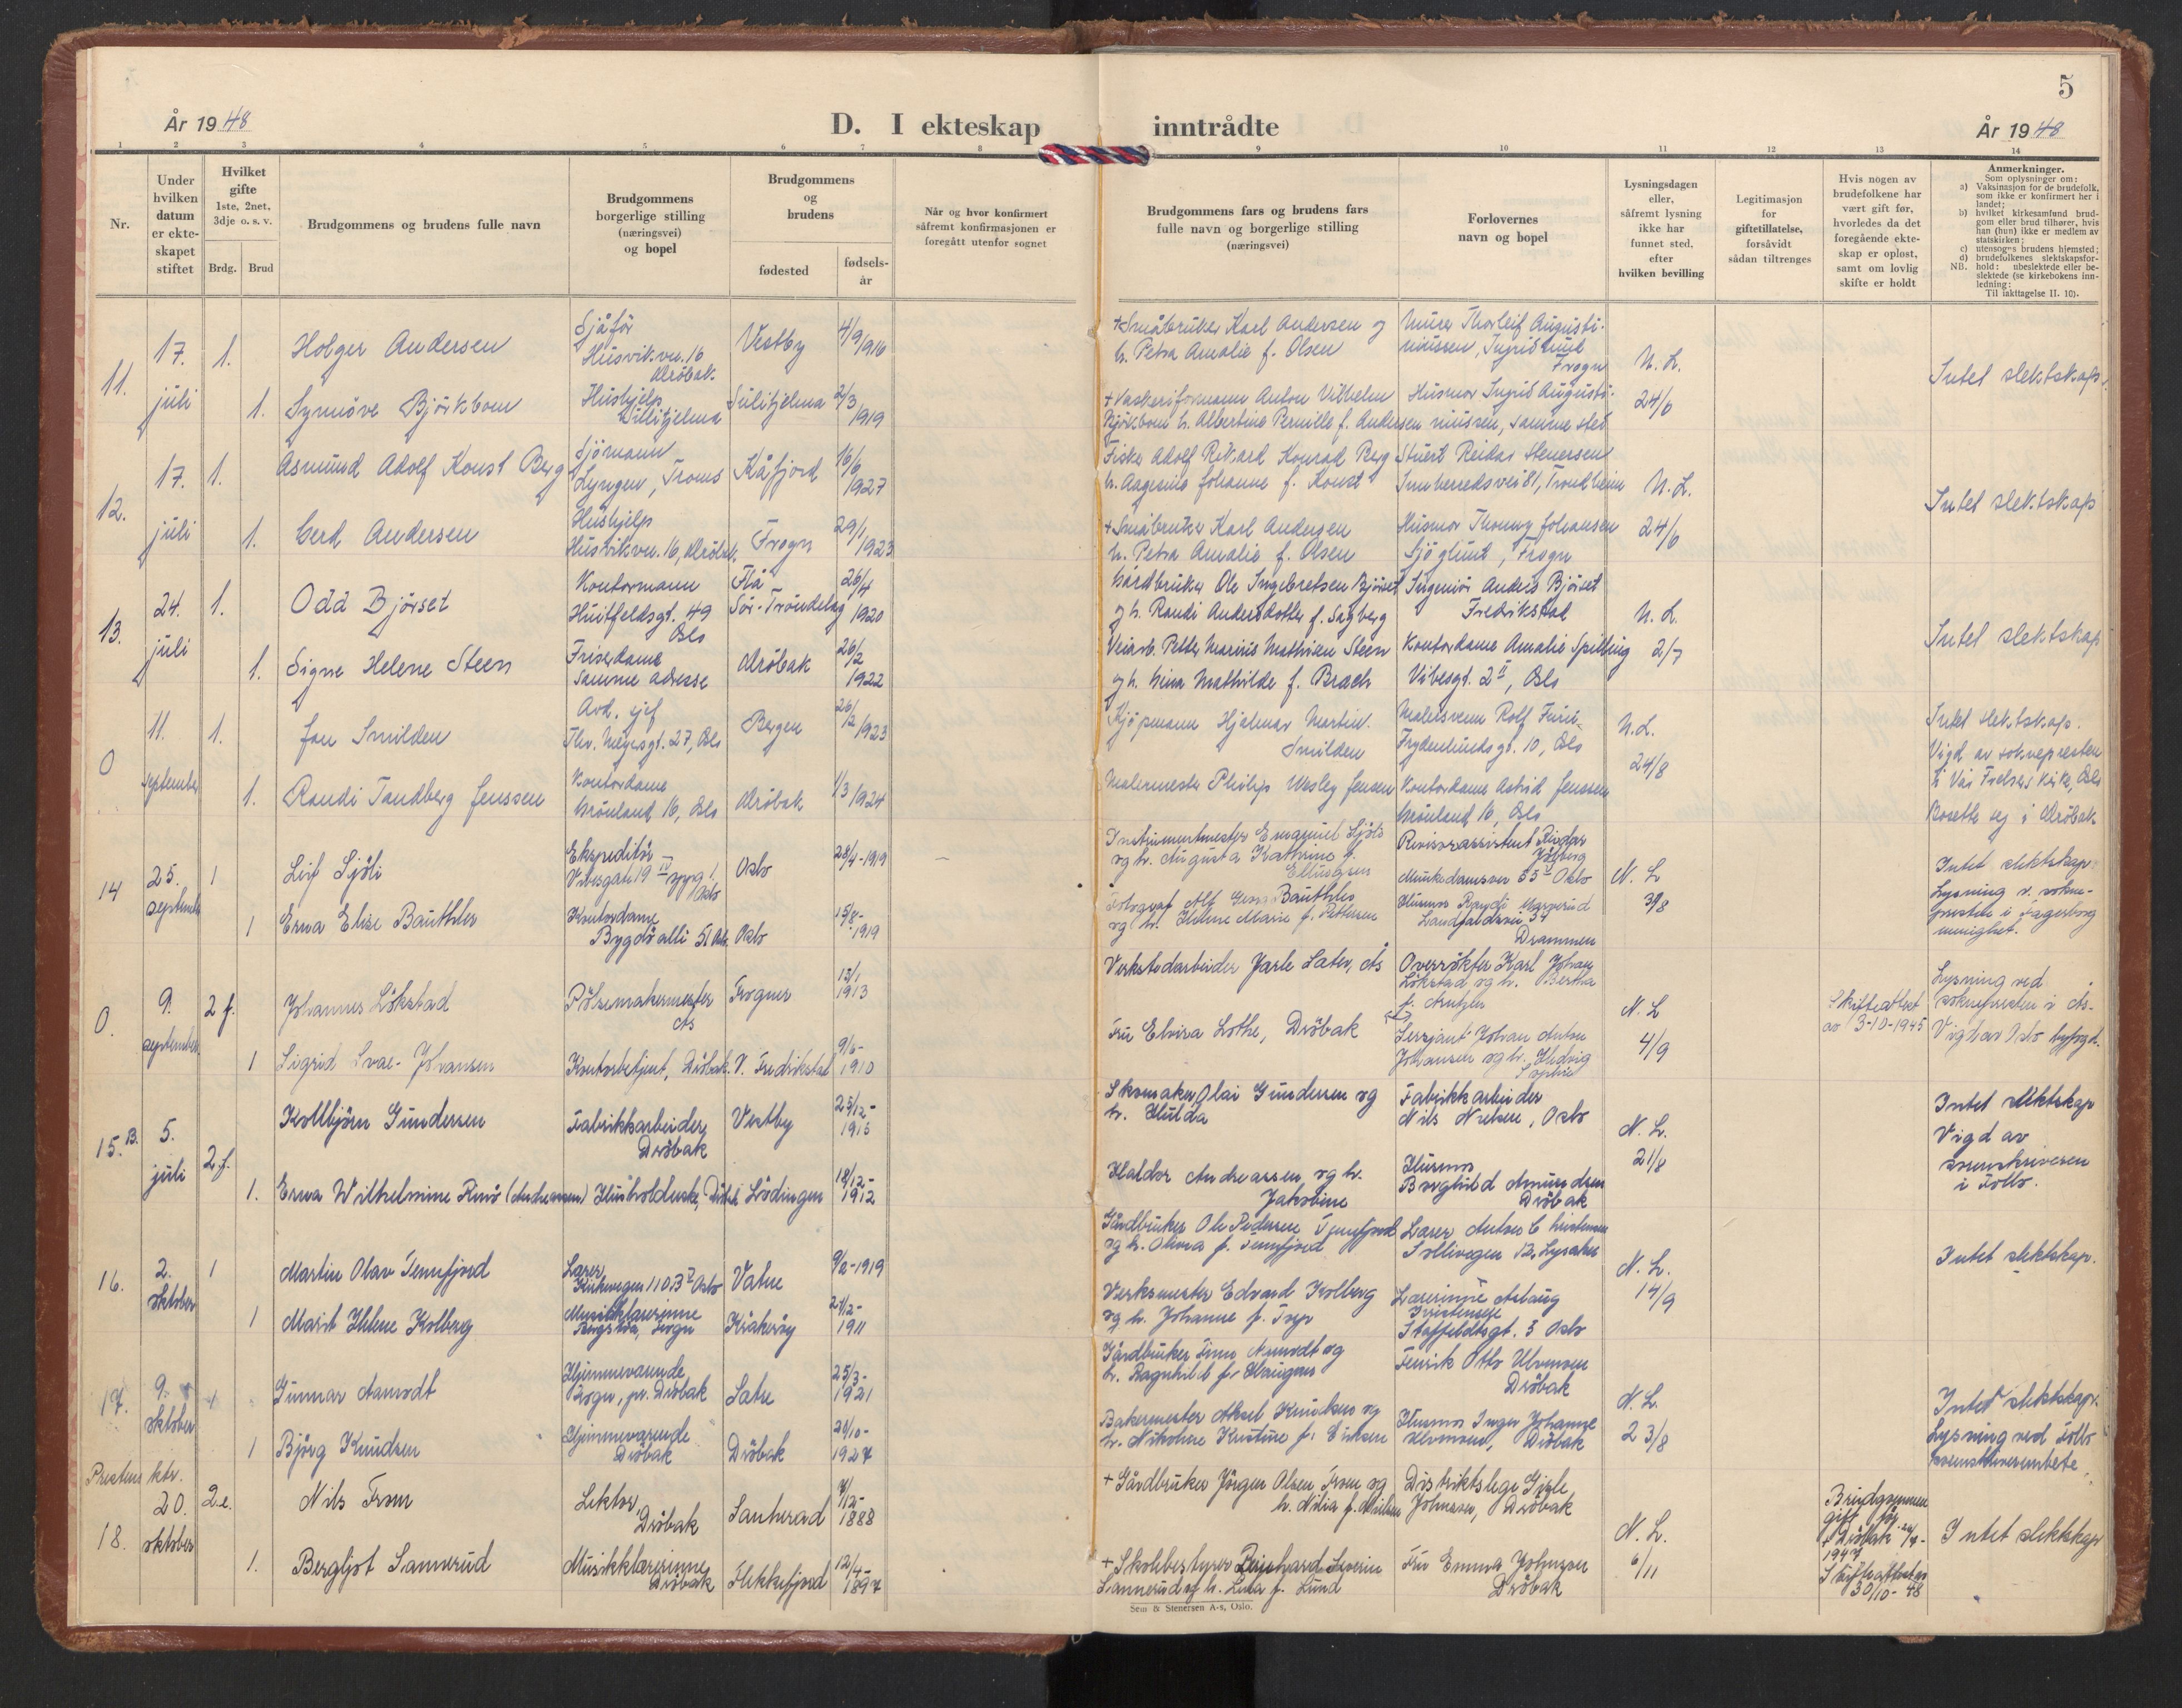 5
År 1948
D. I ekteskap inntrådte
År 1948
1 2 3 4 5 6 7 8 9 10 11 12 13 14
Nr.
Under
hvilken
datum
er ekte-
skapet
stiftet
Hvilket
gifte
1ste, 2net,
3dje o. s. v.
Brdg. Brud
Brudgommens og brudens fulle navn
Brudgommens
borgerlige stilling
(næringsvei)
og bopel
Brudgommens
og
brudens
fødested
fødsels-
år
Når og hvor konfirmert
såfremt konfirmasjonen er
foregått utenfor sognet
Brudgommens fars og brudens fars
fulle navn og borgerlige stilling
(næringsvei)
Forlovernes
navn og bopel
Lysningsdagen
eller,
såfremt lysning
ikke har
funnet sted,
efter
hvilken bevilling
Legitimasjon
for
giftetillatelse,
forsåvidt
sådan tiltrenges
Hvis nogen av
brudefolkene har
vært gift før,
hvorledes da det
foregående ekte-
skap er opløst,
samt om lovlig
skifte er holdt
Anmerkninger.
Som oplysninger om:
a) Vaksinasjon for de brudefolk,
som ikke er konfirmert her i
landet;
b) hvilket kirkesamfund brud-
gom eller brud tilhører, hvis
han (hun) ikke er medlem av
statskirken;
c) utensogns brudens hjemsted;
d) brudefolkenes slektskapsfor-
hold: ubeslektede eller be-
slektede (se kirkebokens inn-
ledning:
NB.
Til iakttagelse II. 10).
11.
17.
juli
1.
Holger Andersen
Sjåfør
Husvikvn. 16
Drøbak
Vestby
4/9 1916
+ Småbruker Karl Andersen og
h. Petra Amalie f. Olsen
Murer Thorleif Augusti-
niussen,
Frogn
N. L.
24/6
Intet slektskap
1. Synnöve Björkbom
Hushjelp
Sulitjelma
Sulitjelma
2/3
1919
+ Vaskeriformann Anton Vilhelm
Björkbom h. Albertine Pernille f. Andersen
Husmor Ingrid Augusti-
niussen, samme sted
12.
17.
juli
1.
Asmund Adolf Konst Berg
Sjömann
Lyngen, Troms
Kåfjord
16/6
1927
Fisker Adolf Rikard Konrad Berg
h. Aagesine Johanne f. Konst
Stuert Reidar Stenersen
Innherredsvei 81, Trondheim
N. L.
24/6
Intet slektskap
1. Gerd Andersen
Hushjelp
Husvikvn. 16, Drøbak.
Frogn
29/1
1923
+ Småbruker Karl Andersen
h. Petra Amalie f. Olsen
Husmor Thorny Johansen
Sjöglimt, Frogn
13.
24.
juli
1.
Odd Björset
Kontormann
Huitfeldsgt. 49
Oslo
Flå
Sör-Tröndelag
26/4
1920
Gårdbruker Ole Ingebretsen Björset
og h. Randi Andersdotter f. Sagberg
Ingeniör Anders Björset
Fredrikstad
N. L.
2/7
Intet slektskap
1. Signe Helene Steen
Friserdame
Samme adresse
Drøbak
26/2
1922
Veiarb. Petter Marius Mathisen Steen
og h. Mina Mathilde f. Brach
Kontordame Amalie Spilling
Vibesgt. 2 II, Oslo
0
11.
september
1.
Jan Smilden
Avd. sjef
Thv. Meyersgt. 27, Oslo
Bergen
26/12 1923
Kjöpmann Hjalmar Martin
Smilden
Malersvenn Rolf
Frydenlundsgt. 10, Oslo
N. L.
24/8
Intet slektskap.
Vigd av soknepresten
i Vår Frelsers kirke, Oslo
Bosette seg i Drøbak
1. Randi Tandberg Jenssen
Kontordame
Grönland 16, Oslo
Drøbak
1/3 1924
Malermester Philip Wesley Jensen
Kontordame Astrid Jenssen
Grönland 16, Oslo
14
25.
september
1
Leif Sjöli
Ekspeditör
Vibesgate 19 IV oppg 1,
Oslo
Oslo
28/4-1919
Instrumentmester Emanuel Sjöli
og h. Augusta Kathrine f.
Ellingsen
Revisorassistent Reidar
Munkedamsvn 55 V Oslo
N. L
31/8
Intet slektskap
Lysning v. sokne-
presten i Fagerborg
menighet.
1 Erna Elise Bauthler
Kontordame
Bygdö allé 51 Oslo
Oslo
15/8-
1919
Fotograf Alf Georg Bauthler
og h. Helene Marie f. Pettersen
Husmor Randi
Landfaldsvei 34
Drammen
0.
9.
september
2 f.
Johannes Lökstad
Pölsemakermester
Ås
Frogner
13/1
1913
Verkstedarbeider Jarle Sater, Ås
Overrökter Karl Johan
Lökstad og h. Bertha
f. Arntzen
N. L
4/9
Skifteattest
av 3-10-1945
Lysning ved
soknepresten i Ås.
Vigd av Oslo byfogd.
1 Sigrid Svae-Johansen
Kontorbetjent, Drøbak.
V. Fredrikstad
9/5-
1910
Fru Elvira Lothe, Drøbak
Sersjant Johan Anton
Johansen og h. Hedvig
Sophie
15. B.
5.
juli
2. f.
Kollbjörn Gundersen
Fabrikkarbeider,
Drøbak
Vestby
25/12-
1915
Skomaker Olai Gundersen og
h. Hulda
Fabrikkarbeider
Nils Nielsen, Oslo
N. L.
21/8
Intet slektskap
Vigd av
sorenskriveren
i Follo.
1. Erna Wilhelmine Rinö (Andreassen)
Husholderske, Drøbak
Lödingen
18/12-
1912
Haldor Andreassen, og h.
Jakobine
Husmor
Borghild Amundsen
Drøbak
16.
2.
oktober
1
Martin Olav Tennfjord
Lærer,
Kirkevegen 110 B V Oslo
Vatne
9/2-1919
Gårdbruker Ole Pedersen Tennfjord
og h. Olina f. Tennfjord
Lærer Anton Christensen
Sollivegen 12, Lysaker
N. L.
14/9
Intet slektskap.
1 Marit Helene Kolberg
Musikklærerinne
Frogn
Kråkeröy
24/12-
1911
Verksmester Edvard Kolberg
og h. Johanne f. Torp
Lærerinne Aslaug
Kristensen
Stoffeldtsgt. 5 Oslo
17.
9.
oktober
1
Gunnar Aamodt
Hjemmeværende
Frogn, pr. Drøbak
Sætre
25/3-
1921
Gårdbruker Finn Aamodt og
h. Ragnhild f. Haugen
Fenrik Otto Ulvensen
Drøbak
N. L.
23/8
Intet slektskap.
Lysning ved Follo
sorenskriverembete.
1 Björg Knudsen
Hjemmeværende
Drøbak
Drøbak
29/10-
1927
Bakermester Aksel Knudsen og
h. Nikoline Kristine f. Eriksen
Husmor Inger Johanne
Ulvensen, Drøbak
Prestens ktr.
18.
20.
oktober
2 e.
Nils From
Lektor,
Drøbak
Sauherad
4/12-
1888
+ Gårdbruker Jörgen Olsen From og
h. Nilia f. Nielsen
Distriktslege Gisle
Johnson, Drøbak
N. L.
6/11
Brudgommen
gift för
+ Drøbak 24/4-
1947
Skifteattest
30/10-48
Intet slektskap
1. Bergljot Sannerud
Musikklærerinne
Drøbak
Flekkefjord
12/4-
1897
+ Skolebestyrer Reinhard Severin
Sannerud og h. Lina f. Lund
Fru Emma Johnson
Drøbak
Sem & Stenersen A-s, Oslo.